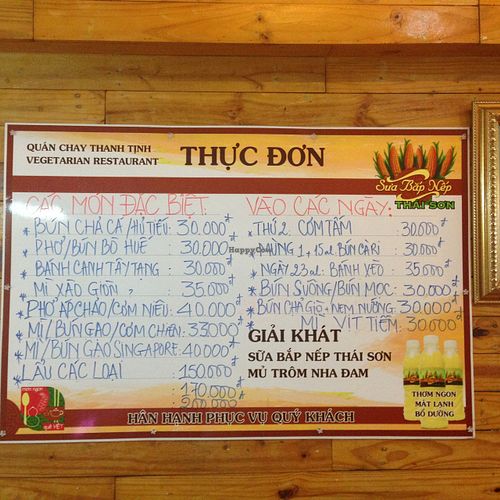 QUÁN CHAY THANH TỊNH
VEGETARIAN RESTAURANT
THỰC ĐƠN
Sữa Bắp Nếp
THÁI SƠN
CÁC MÓN ĐẶC BIỆT:
* BÚN CHẢ CÁ/HỦ TIẾU: 30.000đ
* PHỞ/BÚN BÒ HUẾ : 30.000đ
* BÁNH CANH TÂY TANG : 30.000đ
* MÌ XÀO GIÒN : 35.000đ
* PHỞ ÁP CHẢO/CƠM NIÊU: 40.000đ
* MÌ/BÚN GẠO/CƠM CHIÊN: 33000đ
* MÌ/BÚN GẠO SINGAPORE: 40.000đ
* LẨU CÁC LOẠI : 150.000đ
170.000
200.000
VÀO CÁC NGÀY:
* THỨ 2 CƠM TẤM 30.000đ
* MÙNG 1 + 15 al BÚN CÀ RI 30.000đ
* NGÀY 23 al: BÁNH XÈO : 35.000đ
* BÚN SUÔNG/BÚN MỌC : 30.000đ
* BÚN CHẢ GIÒ - NEM NƯỚNG: 30.000đ
* MÌ VỊT TIỀM : 30.000đ
GIẢI KHÁT
SỮA BẮP NẾP THÁI SƠN
MỦ TRÔM NHA ĐAM
THƠM NGON
MÁT LẠNH
BỔ DƯỠNG
HÂN HẠNH PHỤC VỤ QUÝ KHÁCH
HappyCow